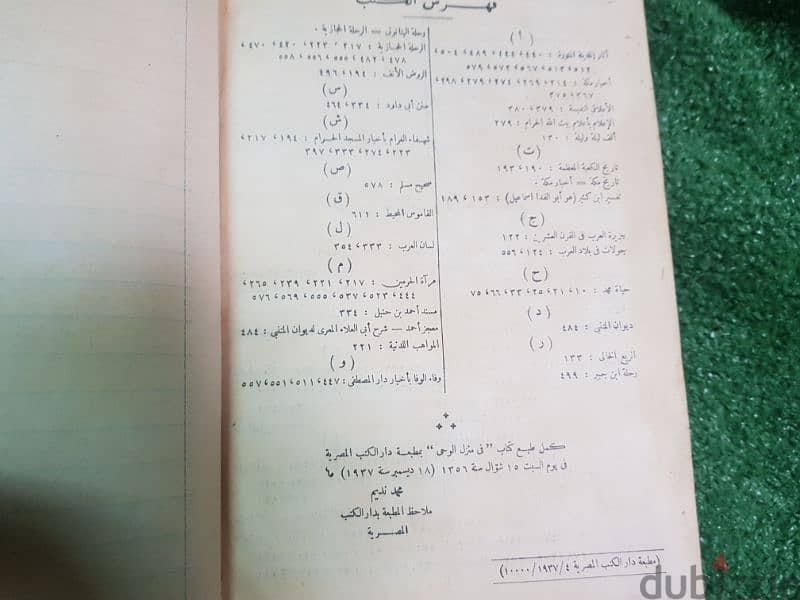 فهرس الكتب
(أ)
آثار المدينة المنورة : ٤٤٠، ٤٤٤، ٤٨٩، ٥٠٤،
٥١٢، ٥١٣، ٥٦٧، ٥٧٢، ٥٧٩
أخبار مكة : ٢١٤، ٢٦٩، ٢٧٤، ٢٧٩، ٢٩٨،
٣٦٧، ٣٧٥
الأعلاق النفيسة : ٣٧٩، ٣٨٠
الإعلام بأعلام بيت الله الحرام : ٢٧٩
ألف ليلة وليلة : ١٣٠
(ت)
تاريخ الكعبة المعظمة : ١٩٠، ١٩٣
تاريخ مكة = أخبار مكة .
تفسير ابن كثير (هو أبو الفدا اسماعيل) : ١٥٣، ١٨٩
(ج)
جزيرة العرب فى القرن العشرين : ١٢٢
جولات فى بلاد العرب : ١٢٤، ٥٥٦
(ح)
حياة محمد : ١٠، ٢١، ٢٥، ٣٣، ٦٦، ٧٥
(د)
ديوان المتنبي : ٤٨٤
(ر)
الربع الخالى : ١٣٣
رحلة ابن جبير : ٤٩٩
رحلة البتانونى = الرحلة الحجازية .
الرحلة الحجازية : ٢١٧، ٢٢٣، ٤٢٠، ٤٧٠،
٤٧٨، ٤٨٢، ٥٥٥، ٥٥٦، ٥٥٨
الروض الأنف : ١٩٤، ٤٩٦
(س)
سنن أبى داود : ٣٣٤، ٤٦٤
(ش)
شفاء الغرام بأخبار المسجد الحرام : ١٩٤، ٢١٧،
٢٢٣، ٢٧٤، ٣٣٣، ٣٩٧
(ص)
صحيح مسلم : ٥٧٨
(ق)
القاموس المحيط : ٦١١
(ل)
لسان العرب : ٣٣٣، ٣٥٤
(م)
مرآة الحرمين : ٢١٧، ٢٢١، ٢٣٩، ٢٦٥،
٤٤٤، ٥٢٣، ٥٣٧، ٥٥٥، ٥٦٩، ٥٧٦
مسند أحمد بن حنبل : ٣٣٤
معجز أحمد — شرح أبى العلاء المعرى لديوان المتنبي : ٤٨٤
المواهب اللدنية : ٢٢١
(و)
وفاء الوفا بأخبار دار المصطفى : ٤٤٧، ٥١١، ٥٥١، ٥٥٧
كمل طبع كتاب ”فى منزل الوحى“ بمطبعة دار الكتب المصرية
فى يوم السبت ١٥ شوال سنة ١٣٥٦ (١٨ ديسمبر سنة ١٩٣٧) م
محمد نديم
ملاحظ المطبعة بدار الكتب
المصرية
(مطبعة دار الكتب المصرية ٤/١٩٣٧/١٠٠٠٠)
dubizzle